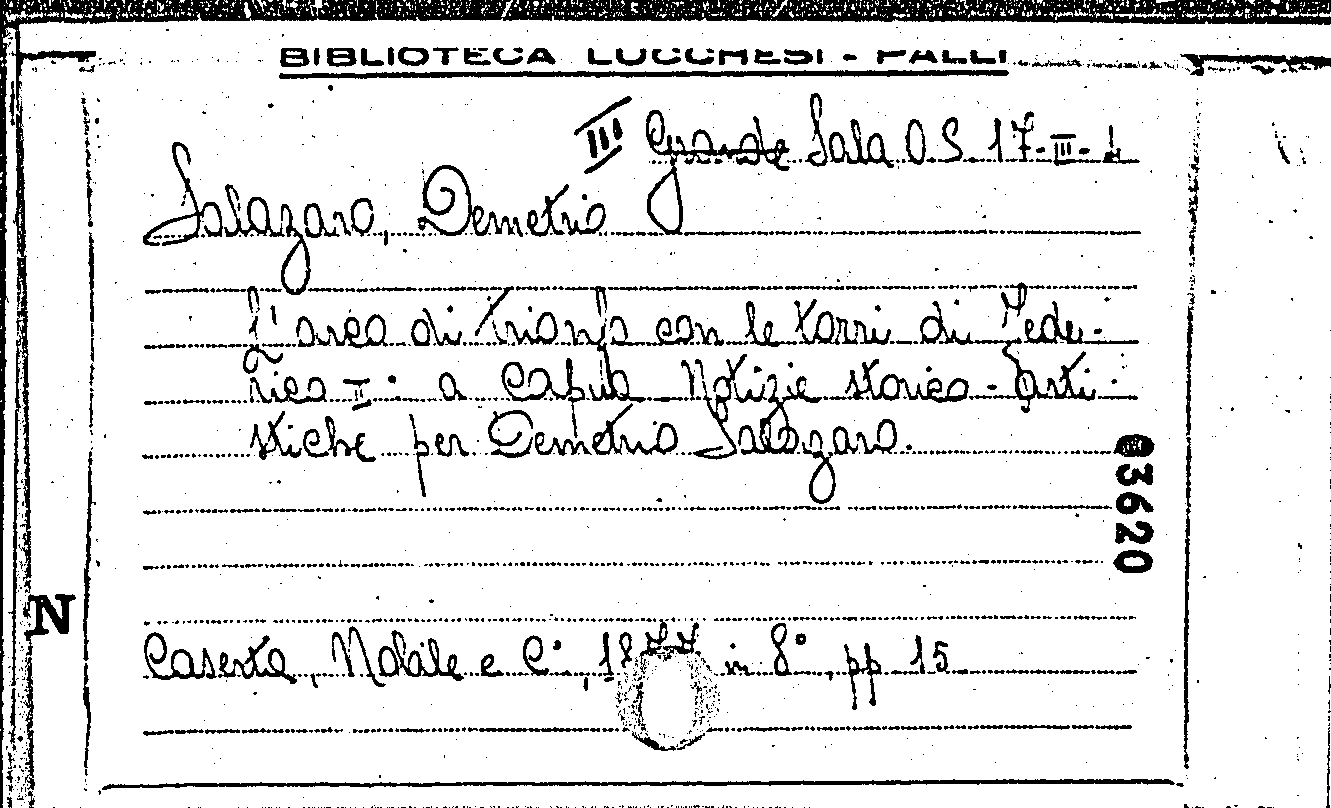 BIBLIOTECA LUCCHESI - PALLI
III Grande Sala O.S. 17-III-1
Salazaro, Demetrio
L'arco di trionfo con le torri di Fede-
rico II: a Capua Notizie storico-arti-
stiche per Demetrio Salazaro.
03620
N
Caserta, Nobile e C°, 1877 in 8°, pp 15